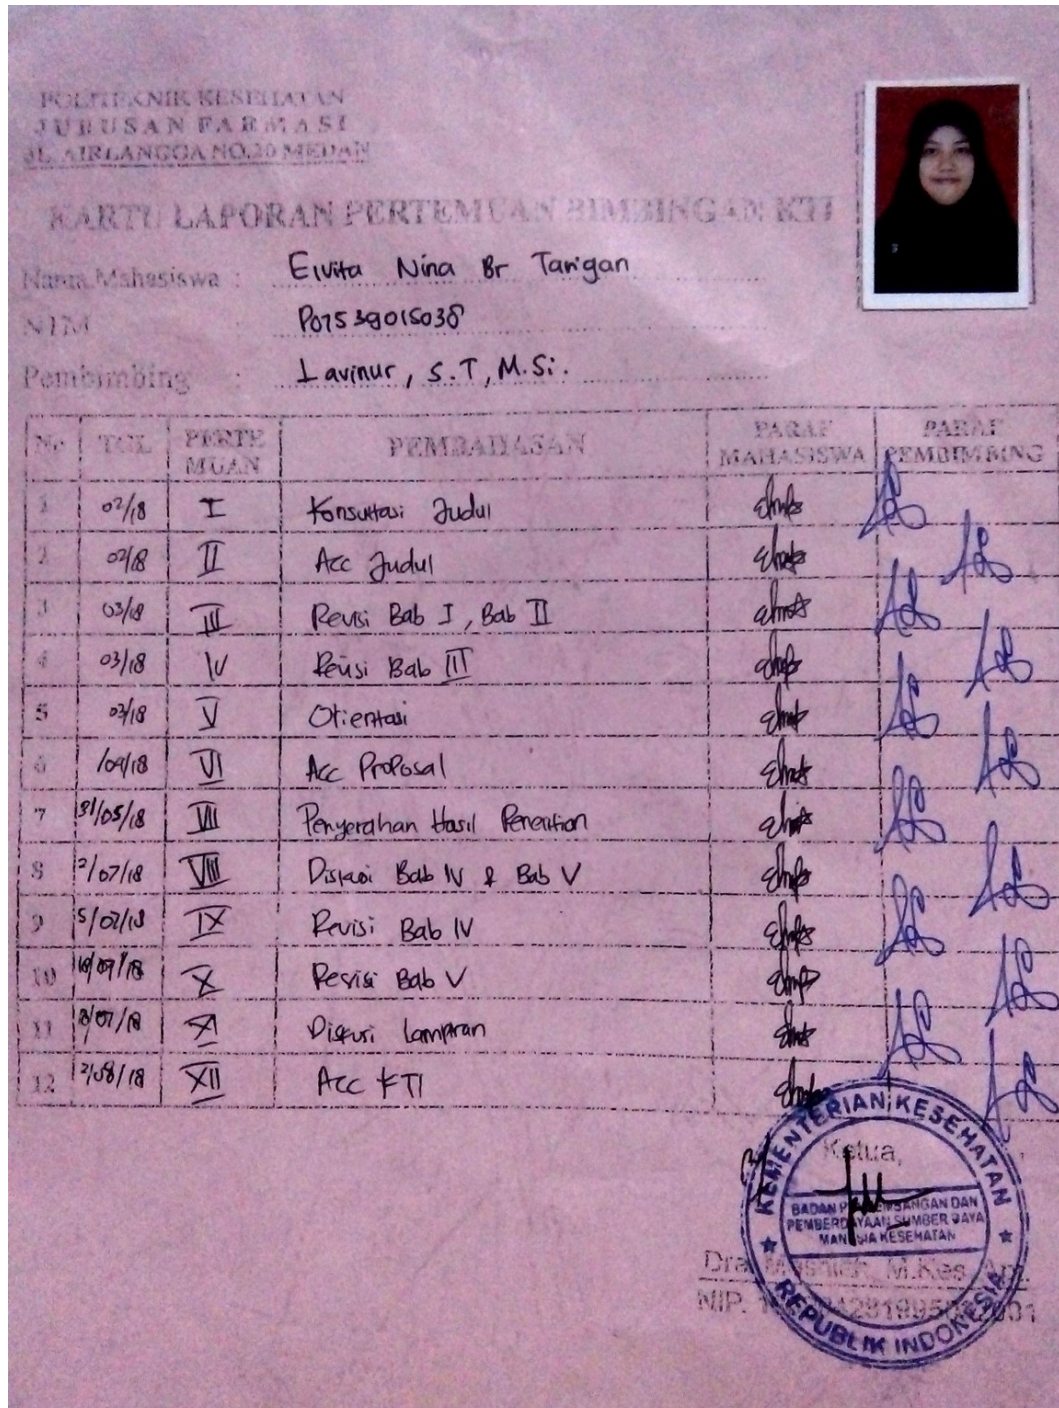 POLITEKNIK KESEHATAN
JURUSAN FARMASI
JL. AIRLANGGA NO.20 MEDAN
KARTU LAPORAN PERTEMUAN BIMBINGAN KTI
Nama Mahasiswa : Elvita Nina Br Tarigan
NIM : P07539015038
Pembimbing : Lavinur, S.T, M.Si.
No TGL PERTEMUAN PEMBAHASAN PARAF MAHASISWA PARAF PEMBIMBING
1 02/18 I Konsultasi Judul
2 02/18 II Acc Judul
3 03/18 III Revisi Bab I, Bab II
4 03/18 IV Revisi Bab III
5 03/18 V Orientasi
6 /04/18 VI Acc Proposal
7 31/05/18 VII Penyerahan Hasil Penelitian
8 2/07/18 VIII Diskusi Bab IV & Bab V
9 5/07/18 IX Revisi Bab IV
10 10/07/18 X Revisi Bab V
11 /07/18 XI Diskusi Lampiran
12 2/08/18 XII Acc KTI
Ketua,
KEMENTERIAN KESEHATAN
BADAN PENGEMBANGAN DAN
PEMBERDAYAAN SUMBER DAYA
MANUSIA KESEHATAN
REPUBLIK INDONESIA
Dra. M.Kes., Apt.
NIP.